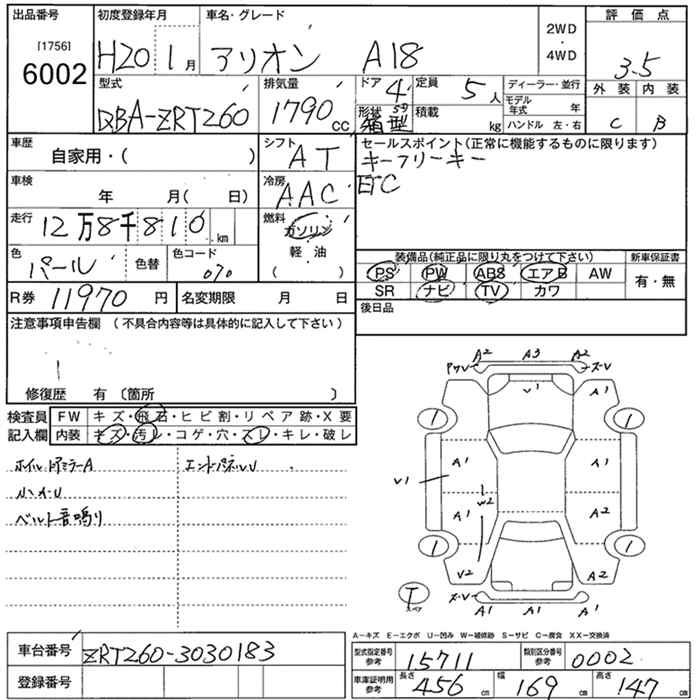 出品番号 初度登録年月 車名・グレード 2WD・4WD 評価点
[1756]
6002 H20 1月 アリオン A18 3.5
型式 排気量 ドア 4 定員 5人 ディーラー・並行 外装 内装
DBA-ZRT260 1790cc 形状 箱型 積載 kg モデル年式 年 C B
ハンドル 左・右
車歴 自家用・( ) シフト AT セールスポイント(正常に機能するものに限ります)
キーフリーキー
車検 年 月( 日) 冷房 AAC ETC
走行 12万8千810km 燃料 ガソリン 軽・油 ( )
色 パール 色替 色コード 070 装備品(純正品に限り丸をつけて下さい) 新車保証書
PS PW ABS エアB AW 有・無
R券 11970円 名変期限 月 日 SR ナビ TV カワ
注意事項申告欄 (不具合内容等は具体的に記入して下さい) 後日品
修復歴 有 (箇所 )
検査員記入欄 FW キズ・飛石・ヒビ割・リペア跡・X要
内装 キズ・汚レ・コゲ・穴・スレ・キレ・破レ
ホイルドアミラーA エンドパネルU
ベルト音鳴り
A2 A3 A2
V1 A1
1 1
A1 A1
V1
W2
A1 A2
1 1
V2 A2
A1 A1 A1
A-キズ E-エクボ U-凹み W-補修跡 S-サビ C-腐食 XX-交換済
車台番号 ZRT260-3030183 型式指定番号 参考 15711 類別区分番号 参考 0002
登録番号 車庫証明用 参考 長さ 456cm 幅 169cm 高さ 147cm